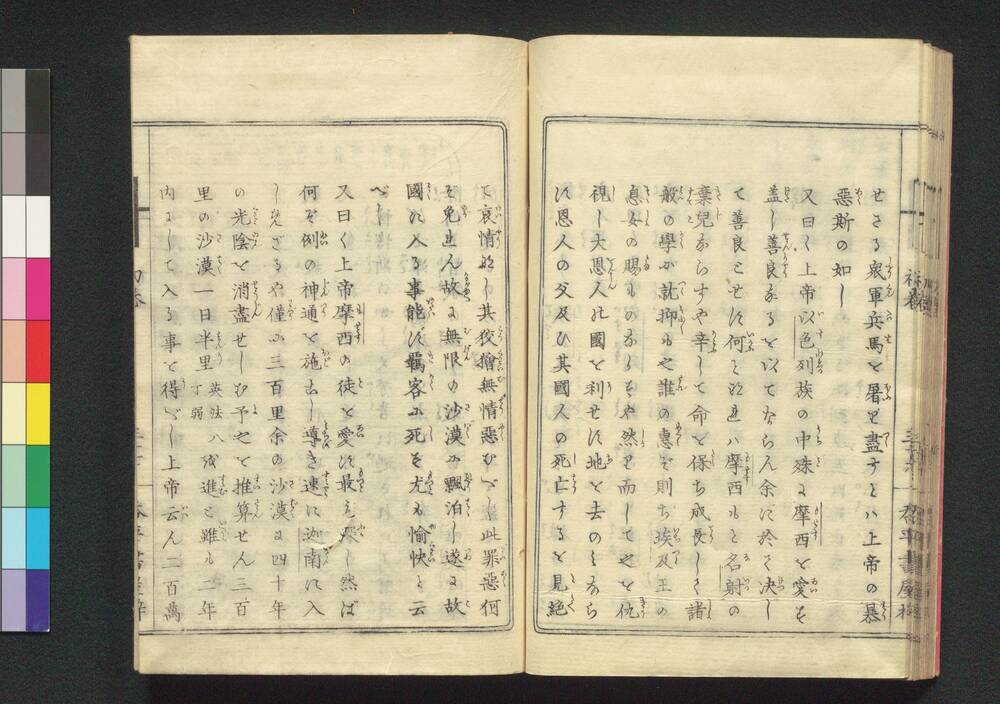 せざる衆軍兵馬を暑里盡すとハ上帝の暴
惡斯の如し
又曰く上帝以色列族の中殊に摩西を愛を
盖し善良なるを以てならん余に於て決し
て善良とせず何と猶ハ摩西もと名射の
棄兒ならすや辛して命を保ち成長して諸
般の學か就抑も之誰の惠ぞ則ち埃及王の
息女の賜ものならすや然り而して之を仇
視し大恩人の國を利せず地を去のみなら
ず恩人の父及び其國人の死亡するを見絶
て哀情なし其狡獪無情惡むべし此罪惡何
ぞ免せん故に無限の沙漠か飄泊し遂に故
國に入る事能ず羈客に死を尤も愉快と云
べし
又曰く上帝摩西の徒を愛ず最も深し然ば
何ぞ例の神通を施さし導き速に迦南に入
しめざるや僅に三百里余の沙漠に四十年
の光陰を消盡せしむ予之を推算せん三百
里の沙漠一日半里 英法八丁弱 を進と雖も二年
内にして入る事を得べし上帝云ん二百萬